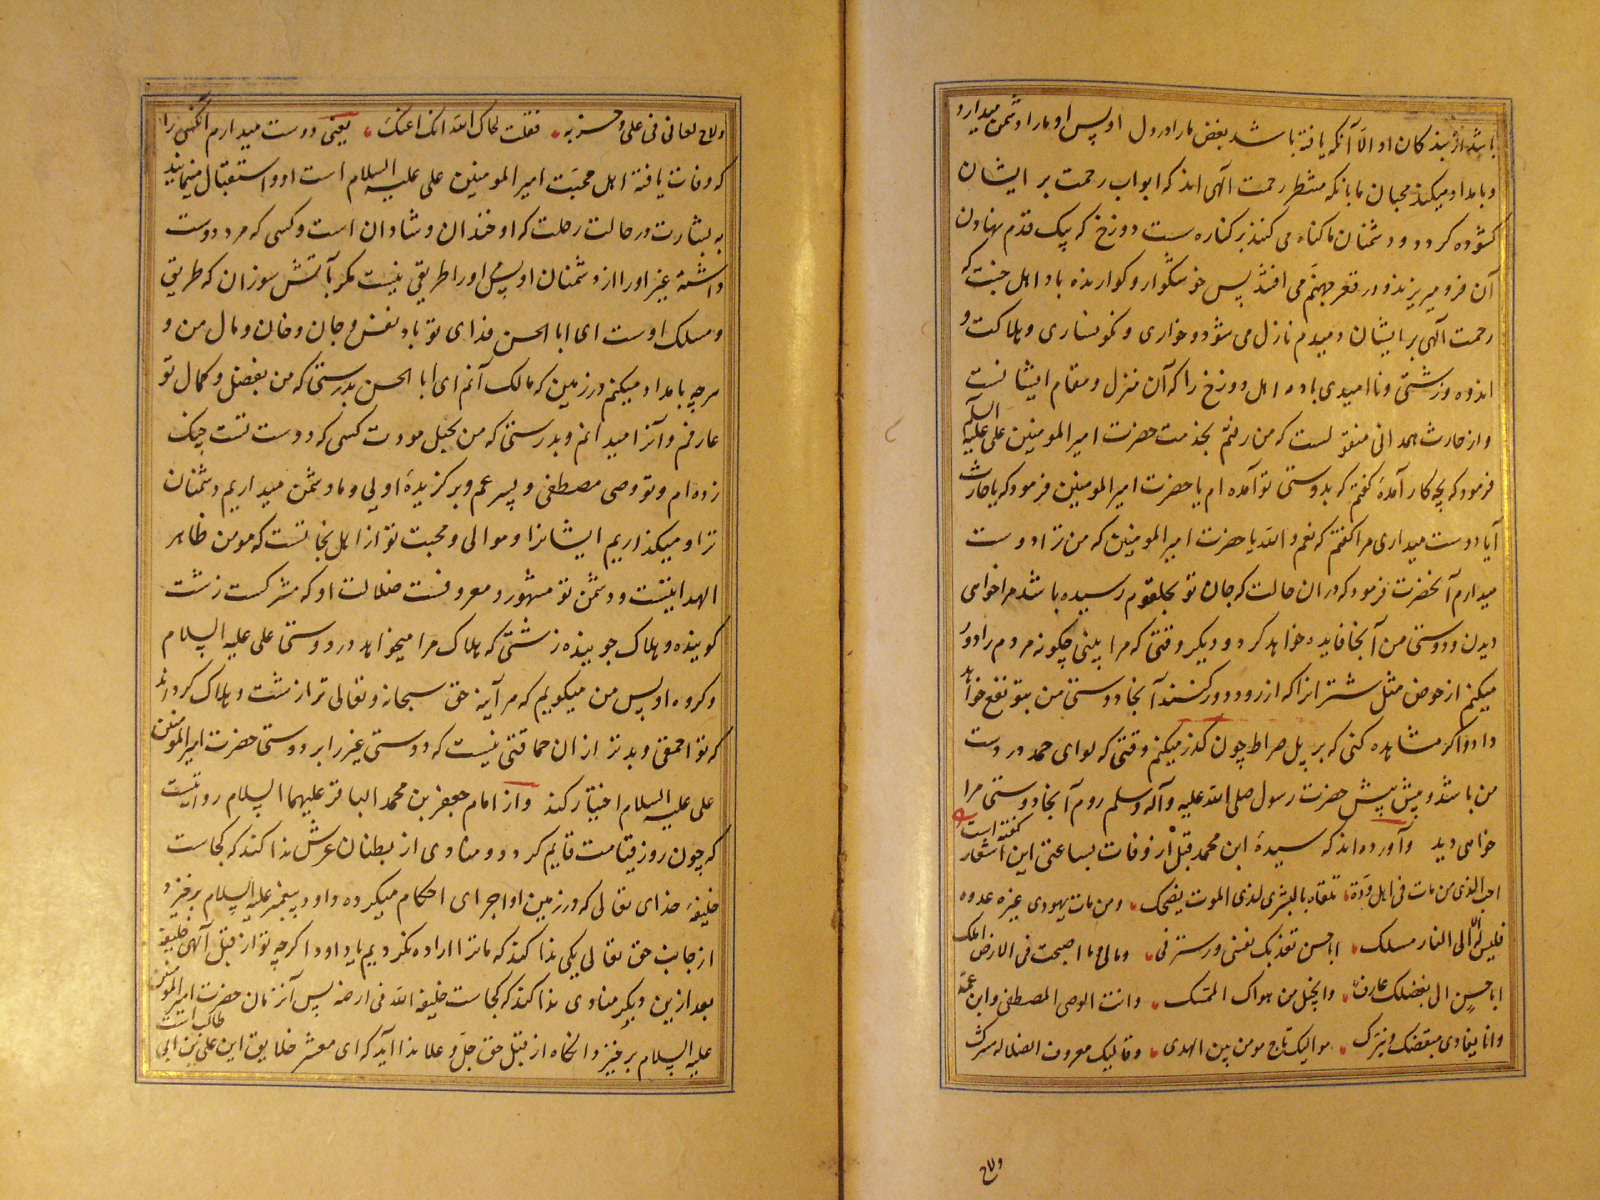 باشد از بندکان او الا آنکه یافته باشد بغض ما را در دل او پس او ما را دشمن میدارد
و بامداد میکند محبان ما بانکه منتظر رحمت آلهی اند که ابواب رحمت بر ایشان
کشوده کردد و دشمنان ما کناه می کنند بر کناره ست دوزخ که پیک قدم نهادن
آن فرو میریزند و در قعر جهنم می افتند پس خوشکوار و کوارنده باد اهل جنت که
رحمت آلهی بر ایشان دمبدم نازل می شود و خواری و نکونساری و هلاکت و
اندوه و زشتی و ناامیدی باد اهل دوزخ را که آن منزل و مقام ایشانست
و از حارث همدانی منقولست که من رفتم بخدمت حضرت امیر المومنین علی علیه السلم
فرمود که بچه کار آمدهٔ کفتم که بدوستی تو آمده ام یا حضرت امیر المومنین فرمود که یا حارث
آیا دوست میداری مرا کفتم که نعم و الله یا حضرت امیر المومنین که من ترا دوست
میدارم آنحضرت فرمود که در ان حالت که جان تو بحلقوم رسیده باشد مرا خواهی
دیدن و دوستی من آنجا فایده خواهد کرد و دیکر وقتی که مرا ببینی چکونه مردم را دور
میکنم از حوض مثل شترانرا که از رود دور کنند آنجا دوستی من بتو نفع خواهد
داد و اکر مشاهده کنی که بر پل صراط چون کذر میکنم وقتی که لوای حمد در دست
من باشد و پیش پیش حضرت رسول صلی الله علیه و آله وسلم روم آنجا دوستی مرا
خواهی دید و آورده اند که سیدهٔ ابن محمد قبل از وفات بساعتی این اشعار کفته است
احب الذی من مات فی اهل وده تلقاه بالبشری لدی الموت یضحک ومن مات یهوی غیره عدوه
فلیس له الا الی النار مسلک ابا حسن تفدیک نفسی و اسرتی و مالی و ما اصبحت فی الارض املک
ابا حسن انی بفضلک عارف وانی بحبل من هواک الممسک وانت الوصی المصطفی وابن عمه
وانا نعادی مبغضک و نترک موالیک ناج مومن بین الهدی و قالیک معروف الضلاله مشرک
ولاح
ولاح لحانی فی علی و حزبه فقلت لحاک الله انک اعفک یعنی دوست میدارم آنکهی را
که وفات یافته اهل محبت امیر المومنین علی علیه السلام است او را استقبال مینمایند
به بشارت در حالت رحلت که او خندان و شادان است و کسی که مرد دوست
داشتهٔ غیر او را از دشمنان او پس او را طریقی نیست مکر بآتش سوزان که طریق
و مسلک اوست ای ابا الحسن فدای تو باد نفس و جان و خان و مال من و
هر چه بامداد میکنم در زمین که مالک آنم ای ابا الحسن بدرستی که من بفضل و کمال تو
عارفم و آنرا میدانم و بدرستی که من بحبل مودت کسی که دوست تست چنک
زده ام و تو وصی مصطفی و پسر عم و برکزیدهٔ اویی و ما دشمن میداریم دشمنان
ترا و میکذاریم ایشانرا و موالی و محبت تو از اهل نجاتست که مومن ظاهر
الهدایتست و دشمن تو مشهور و معروفست ضلالت او که مشرکست زشت
کوینده و هلاک جوینده زشتی که هلاک مرا میخواهد در دوستی علی علیه السلام
و کروه او پس من میکویم که هر آینه حق سبحانه و تعالی ترا زشت و هلاک کرداند
که تو احمقی و بدتر از ان حماقتی نیست که دوستی غیر را بر دوستی حضرت امیر المومنین
علی علیه السلام اختیار کند و از امام جعفر بن محمد الباقر علیهما السلام روایتست
که چون روز قیامت قایم کردد و منادی از بطنان عرش ندا کند که کجاست
خلیفهٔ خدای تعالی که در زمین او اجرای احکام میکرده داود پیغمبر علیه السلام برخیزد
از جانب حق تعالی یکی ندا کند که ما ترا اراده نکردیم یا داود اکر چه تو از قبل آلهی خلیفهٔ
بعد از ین دیکر منادی ندا کند که کجاست خلیفة الله فی ارضه پس آنزمان حضرت امیر المومنین
علیه السلام برخیزد آنکاه از قبل حق جل و علا ندا آید که ای معشر خلایق این علی بن ابی طالب است